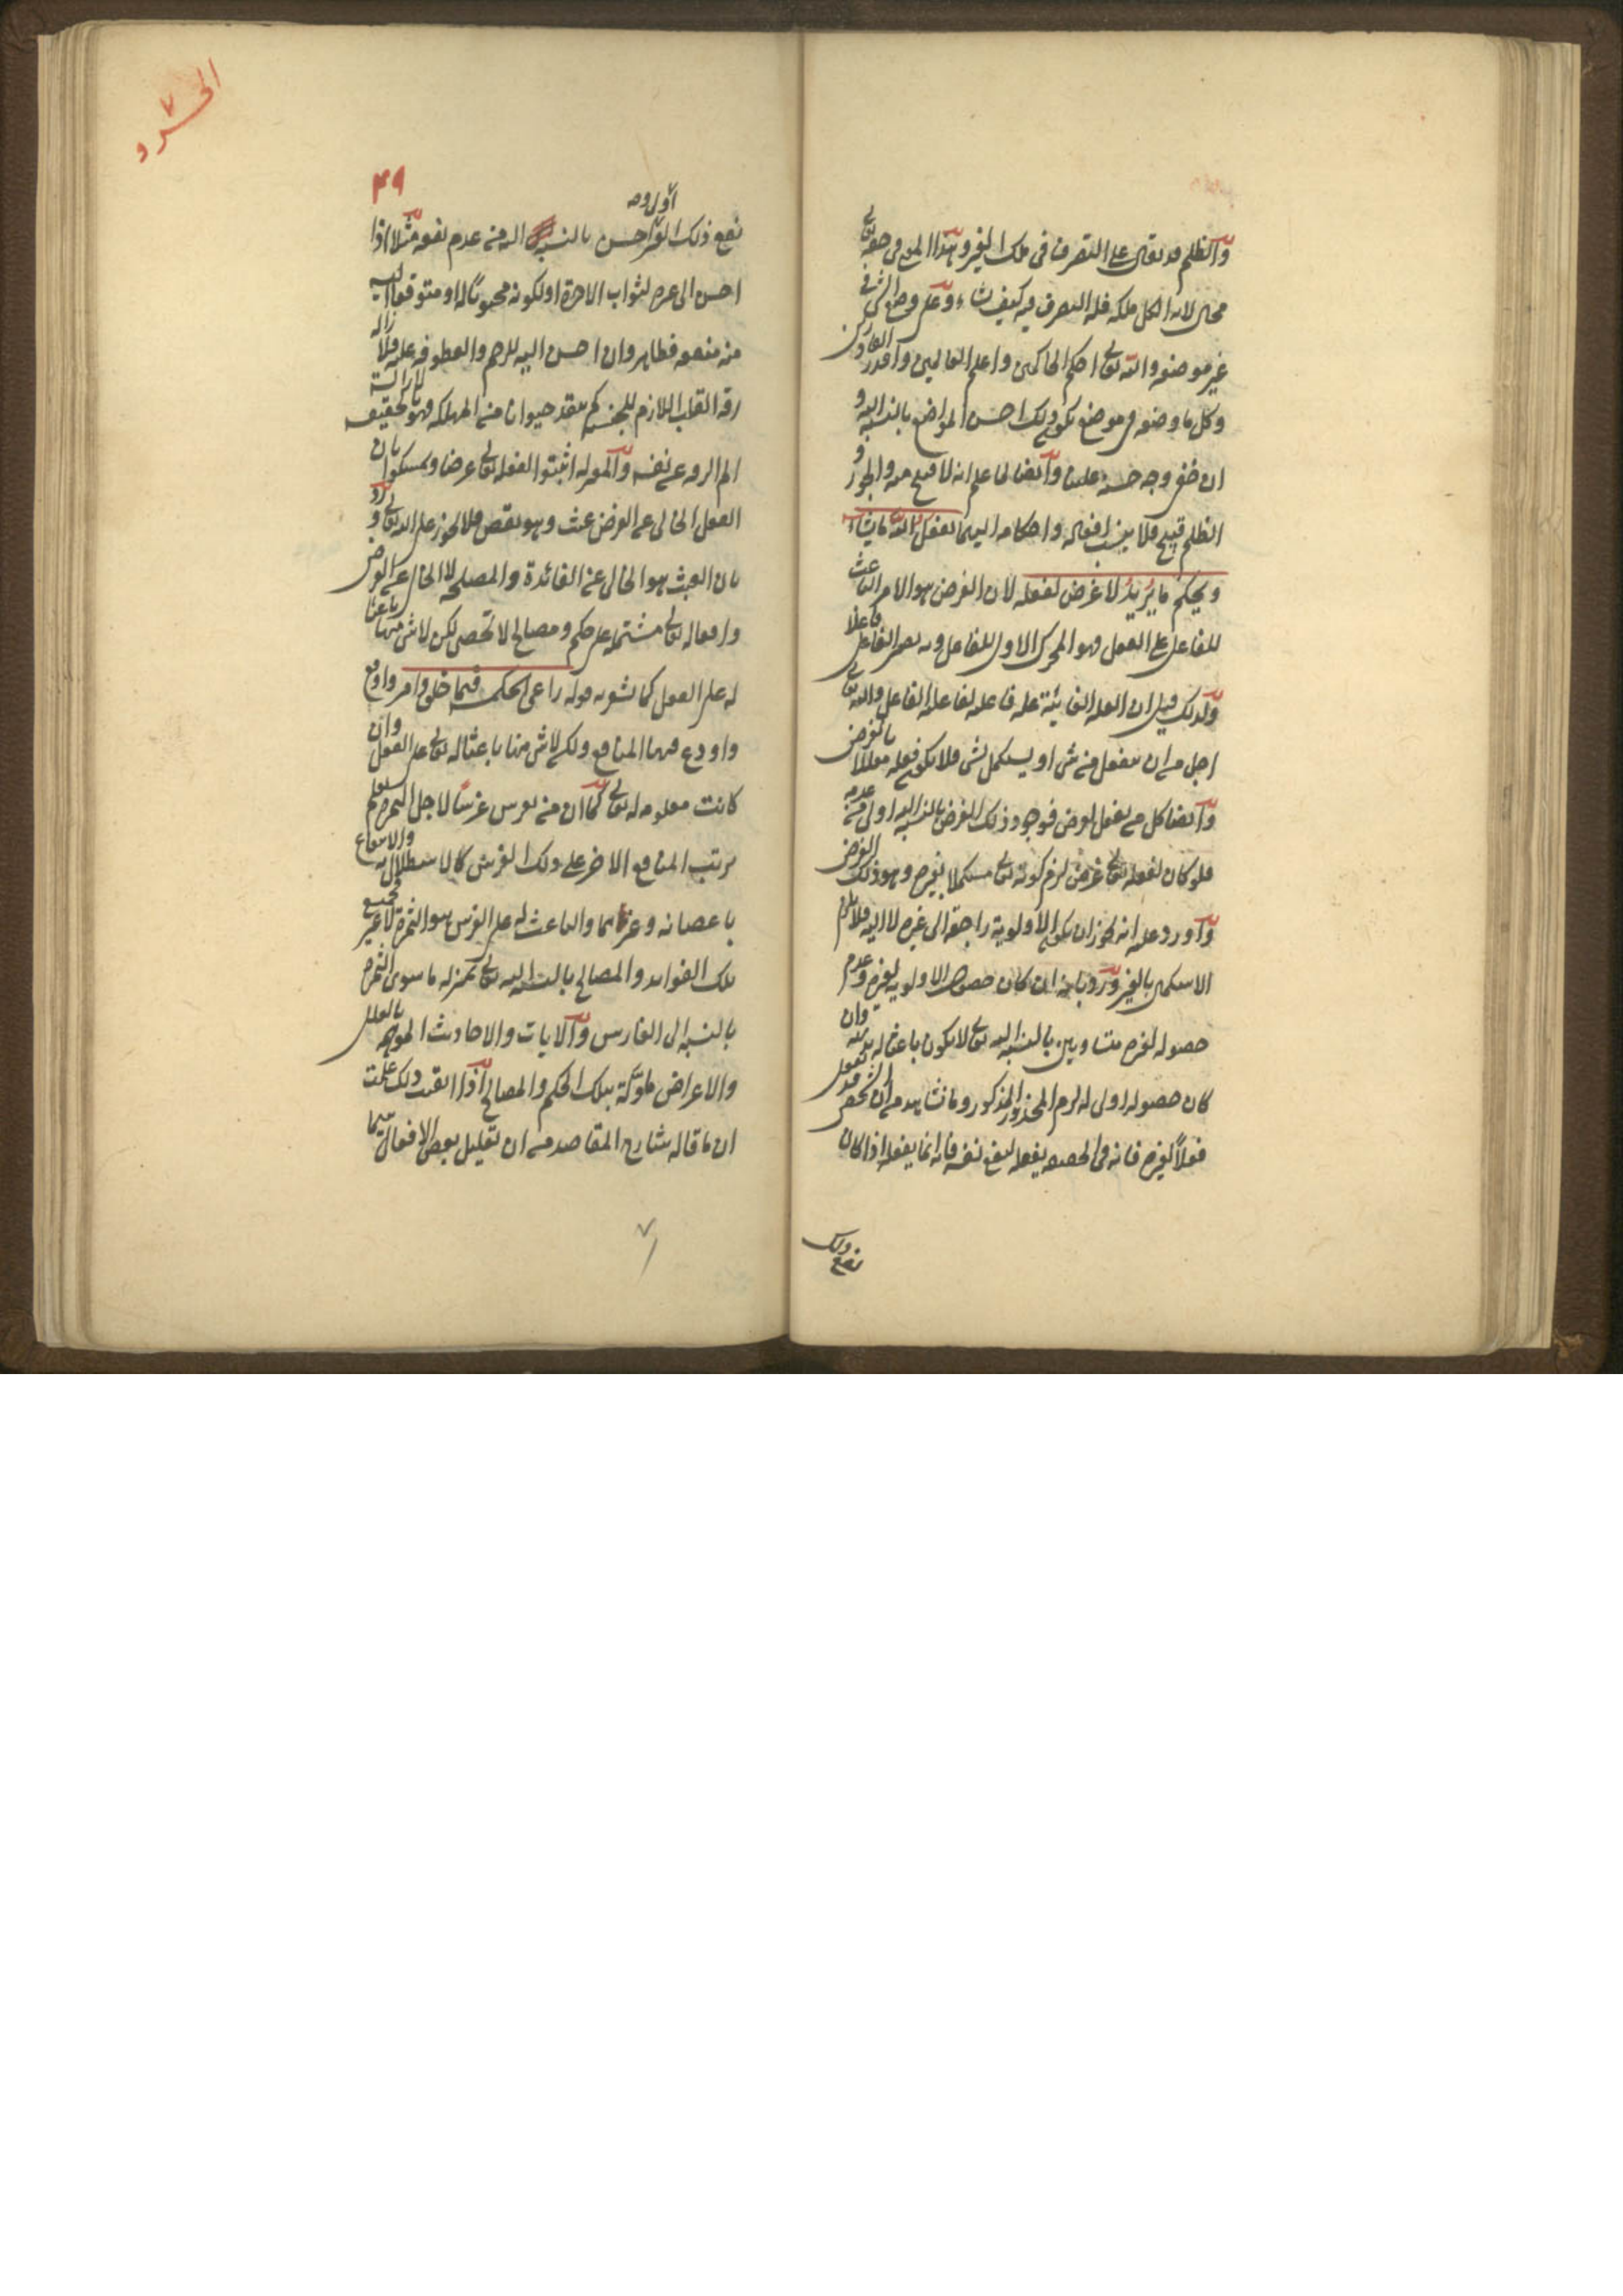 والظلم قد يقال على التصرف في ملك الغير وهذا المعنى في حقه تعالى
محال لان الكل ملكه فله التصرف فيه كيف شاء وعلى وضع الشئ في
غير موضعه والله تعالى احكم الحاكمين واعلم العالمين واقدر القادرين
وكل ما وضعه في موضع يكون ذلك احسن المواضع بالنسبة اليه و
ان خفى وجه حسنه علينا وايضا لما علم انه لا قبيح منه والجور و
الظلم قبيح فلا ينسب افعاله واحكامه اليهما يفعل الله ما يشاء
ويحكم ما يريد لا غرض لفعله لان الغرض هو الامر الباعث
للفاعل على الفعل فهو المحرك الاول للفاعل وبه يصير الفاعل فاعلا
ولذلك قيل ان العلة الغائية علة فاعلية لفاعلية الفاعل والله تعالى
اجل من ان ينفعل من شئ او يستكمل بشئ فلا يكون فعله معللا بالغرض
وايضا كل من يفعل لغرض فوجود ذلك الغرض بالنسبة اليه اولى من عدمه
فلو كان لفعله تعالى غرض لزم كونه تعالى مستكملا بغيره وهو ذلك الغرض
واورد عليه انه يجوز ان يكون الاولوية راجعة الى غيره لا اليه فلا يلزم
الاستكمال بالغير ورد بانه ان كان حصول الاولوية لغيره وعدم
حصوله لغيره متساويين بالنسبة اليه تعالى لا يكون باعثا له بديهة وان
كان حصوله اولى له لزم المحذور المذكور وما نشاهد من ان الشخص قد يفعل
فعلا لغيره فانه في الحقيقة يفعله لنفع نفسه فانه انما يفعله اذا كان
نفع ذلك
الى
سرد
٧
٤٩
اولى و
نفع ذلك الغير احسن بالنسبة اليه من عدم نفعه مثلا اذا
احسن الى غيره لثواب الآخرة او لكونه محبوبا له او متوقعا
منه منفعة فظاهر وان احسن اليه للرحم والعطوفة عليه فلازالة
رقة القلب اللازم للجنسية كمنقذ حيوان من المهلكة فهو في الحقيقة لازالة
الم الرقة عن نفسه والمعتزلة اثبتوا لفعله تعالى غرضا وتمسكوا بان
الفعل الخالي عن الغرض عبث وهو نقص فلا يجوز على الله تعالى ورد
بان العبث هو الخالي عن الفائدة والمصلحة لا الخالي عن الغرض
وافعاله تعالى مشتملة على حكم ومصالح لا تحصى لكن لا شئ منها باعثا
له على الفعل كما يشعر به قوله راعى الحكمة فيما خلق وامر واودع
واودع فيهما المنافع ولكن لا شئ منها باعثا له تعالى على الفعل وان
كانت معلومة له تعالى كما ان من يغرس غرسا لاجل الثمرة يعلم
ترتب المنافع الاخر على ذلك الغرس كالاستظلال به والانتفاع
باغصانه وغيرهما والباعث له على الغرس هو الثمرة لا غير فجميع
تلك الفوائد والمصالح بالنسبة اليه تعالى بمنزلة ما سوى الثمرة
بالنسبة الى الغارس والآيات والاحاديث الموهمة بالعلل
والاغراض مأولة بتلك الحكم والمصالح اذا اتقنت ذلك علمت
ان ما قاله شارح المقاصد من ان تعليل بعض الافعال سيما